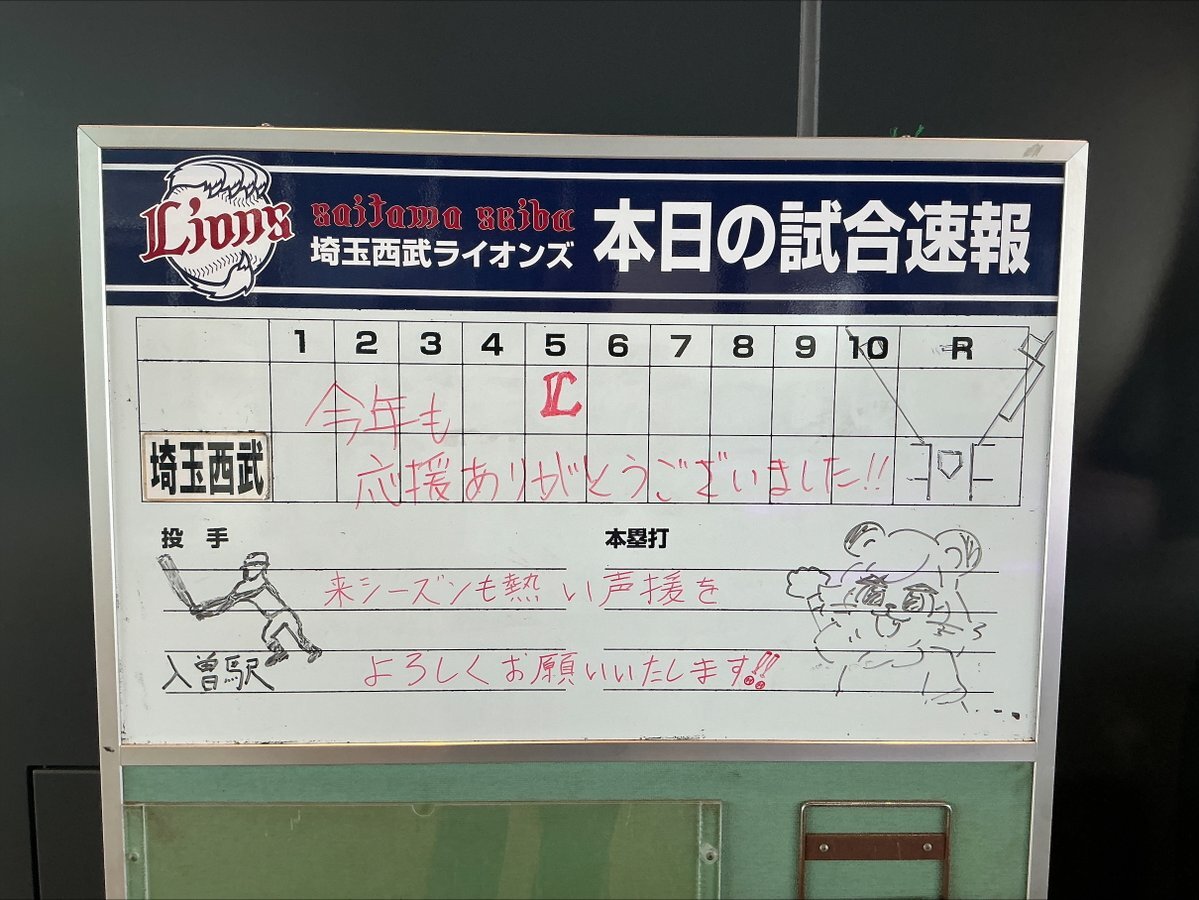 Lions
saitama seibu
埼玉西武ライオンズ 本日の試合速報
1 2 3 4 5 6 7 8 9 10 R
今年も
埼玉西武 応援ありがとうございました!!
投手 本塁打
来シーズンも熱い声援を
入曽駅 よろしくお願いいたします!!